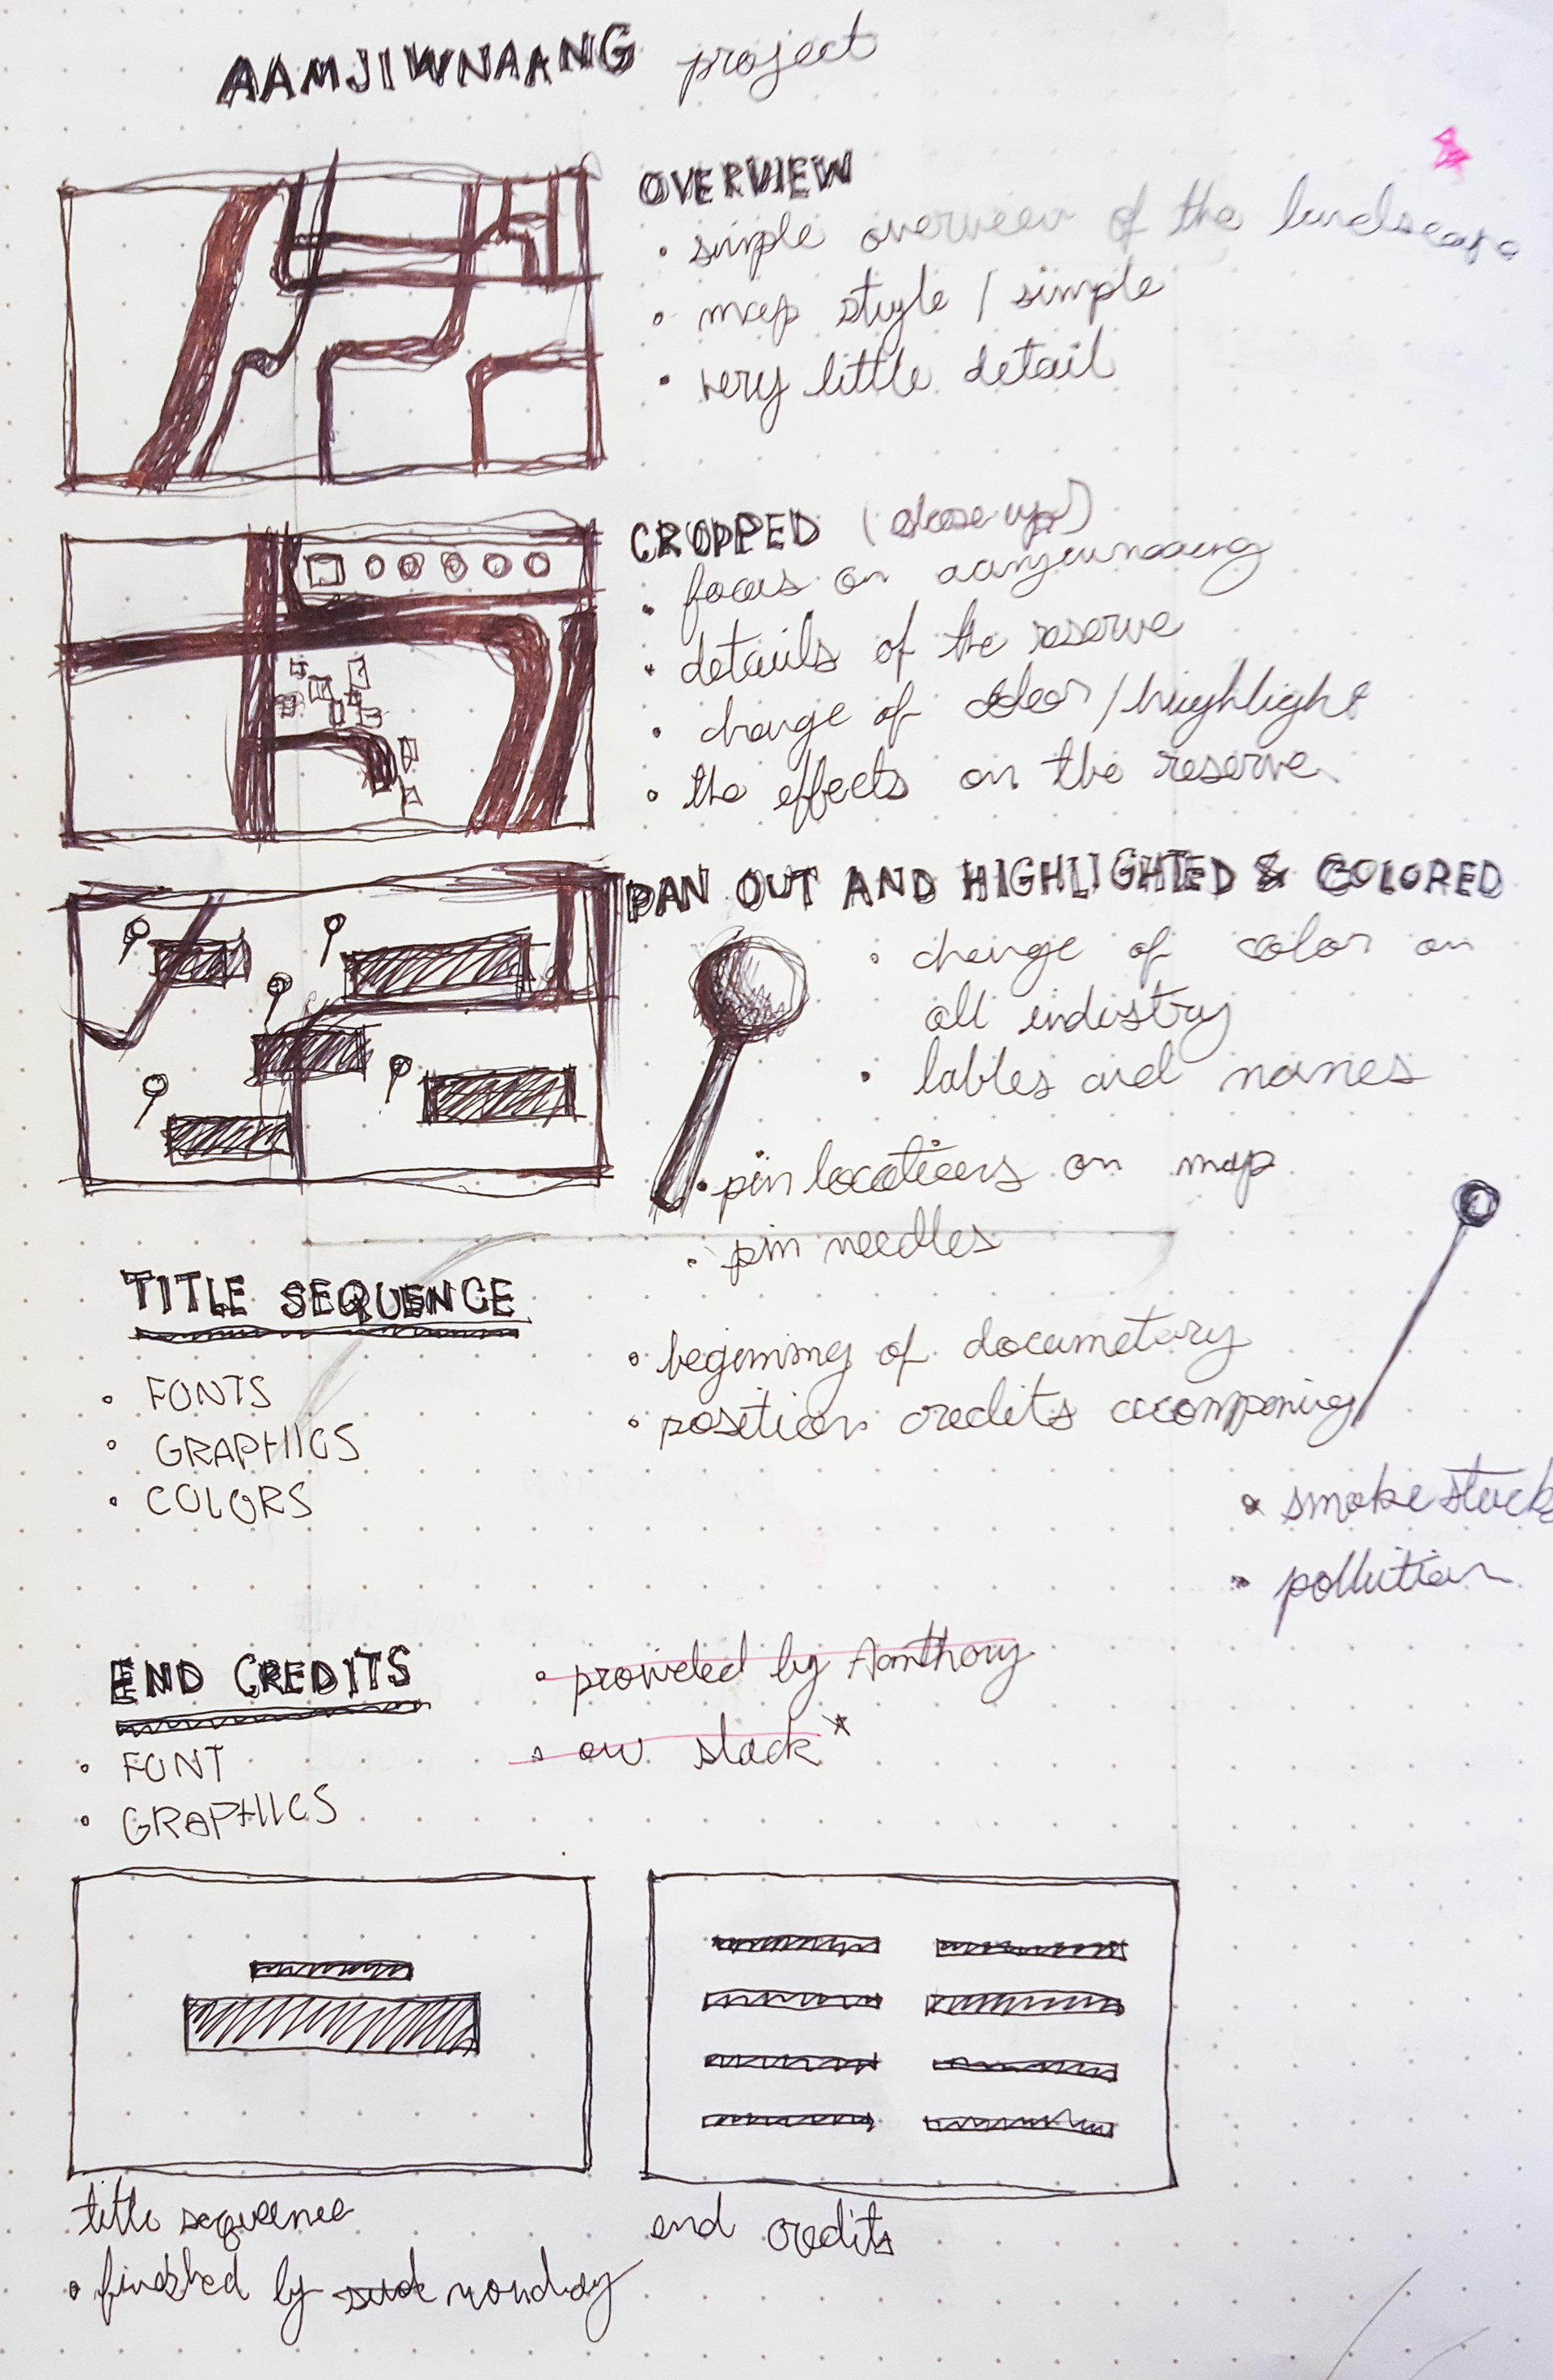 AAMJIWNAANG project
OVERVIEW
• simple overview of the landscape
• map style / simple
• very little detail
CROPPED (close up)
• focus on aamjiwnaang
• details of the reserve
• change of color / highlight
• the effects on the reserve
PAN OUT AND HIGHLIGHTED & COLORED
• change of color on
all industry
• lables and names
• pin locations on map
• pin needles
TITLE SEQUENCE
• FONTS
• GRAPHICS
• COLORS
• beginning of documetary
• position credits accompaning
• smoke stack
• pollution
END CREDITS
• FONT
• GRAPHICS
• provided by Anthony
• on slack*
title sequence
• finished by monday
end credits